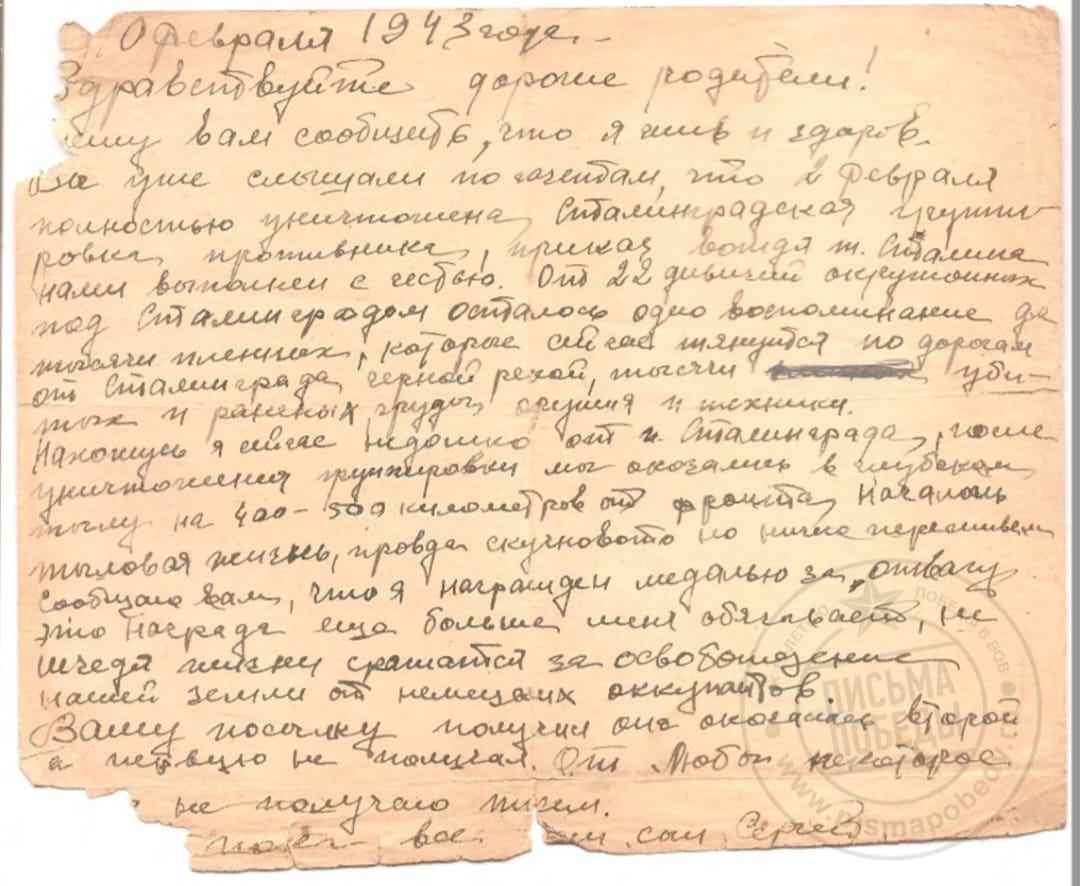 10 февраля 1943 года.
Здравствуйте дорогие родители!
вам сообщить, что я жив и здоров.
Вы уже слышали по газетам, что 2 февраля
полностью уничтожена Сталинградская группи-
ровка противника, приказ вождя т. Сталина
нами выполнен с честью. От 22 дивизий окружонных
под Сталинградом осталось одно воспоминание да
тысячи пленных, которые сейчас тянутся по дорогам
от Сталинграда черной рекой, тысячи уби-
тых и раненых груды оружия и техники.
Нахожусь я сейчас недолеко от г. Сталинграда, после
уничтожения групировки мы оказались в глубоком
тылу на 400-500 километров от фронта. Началась
тыловая жизнь, правда скучновато но ничего переживем
Сообщаю вам, что я награжден медалью за „отвагу
это награда еще больше меня обязывает, не
щедя жизни сражатся за освобождение
нашей земли от немецких оккупантов.
Вашу посылку получил она оказалась второй
а первую не получал. От Любы некоторое
не получаю писем.
пока все. сын Сергей
ПИСЬМА
ПОБЕДЫ
www.pismapobedy.ru